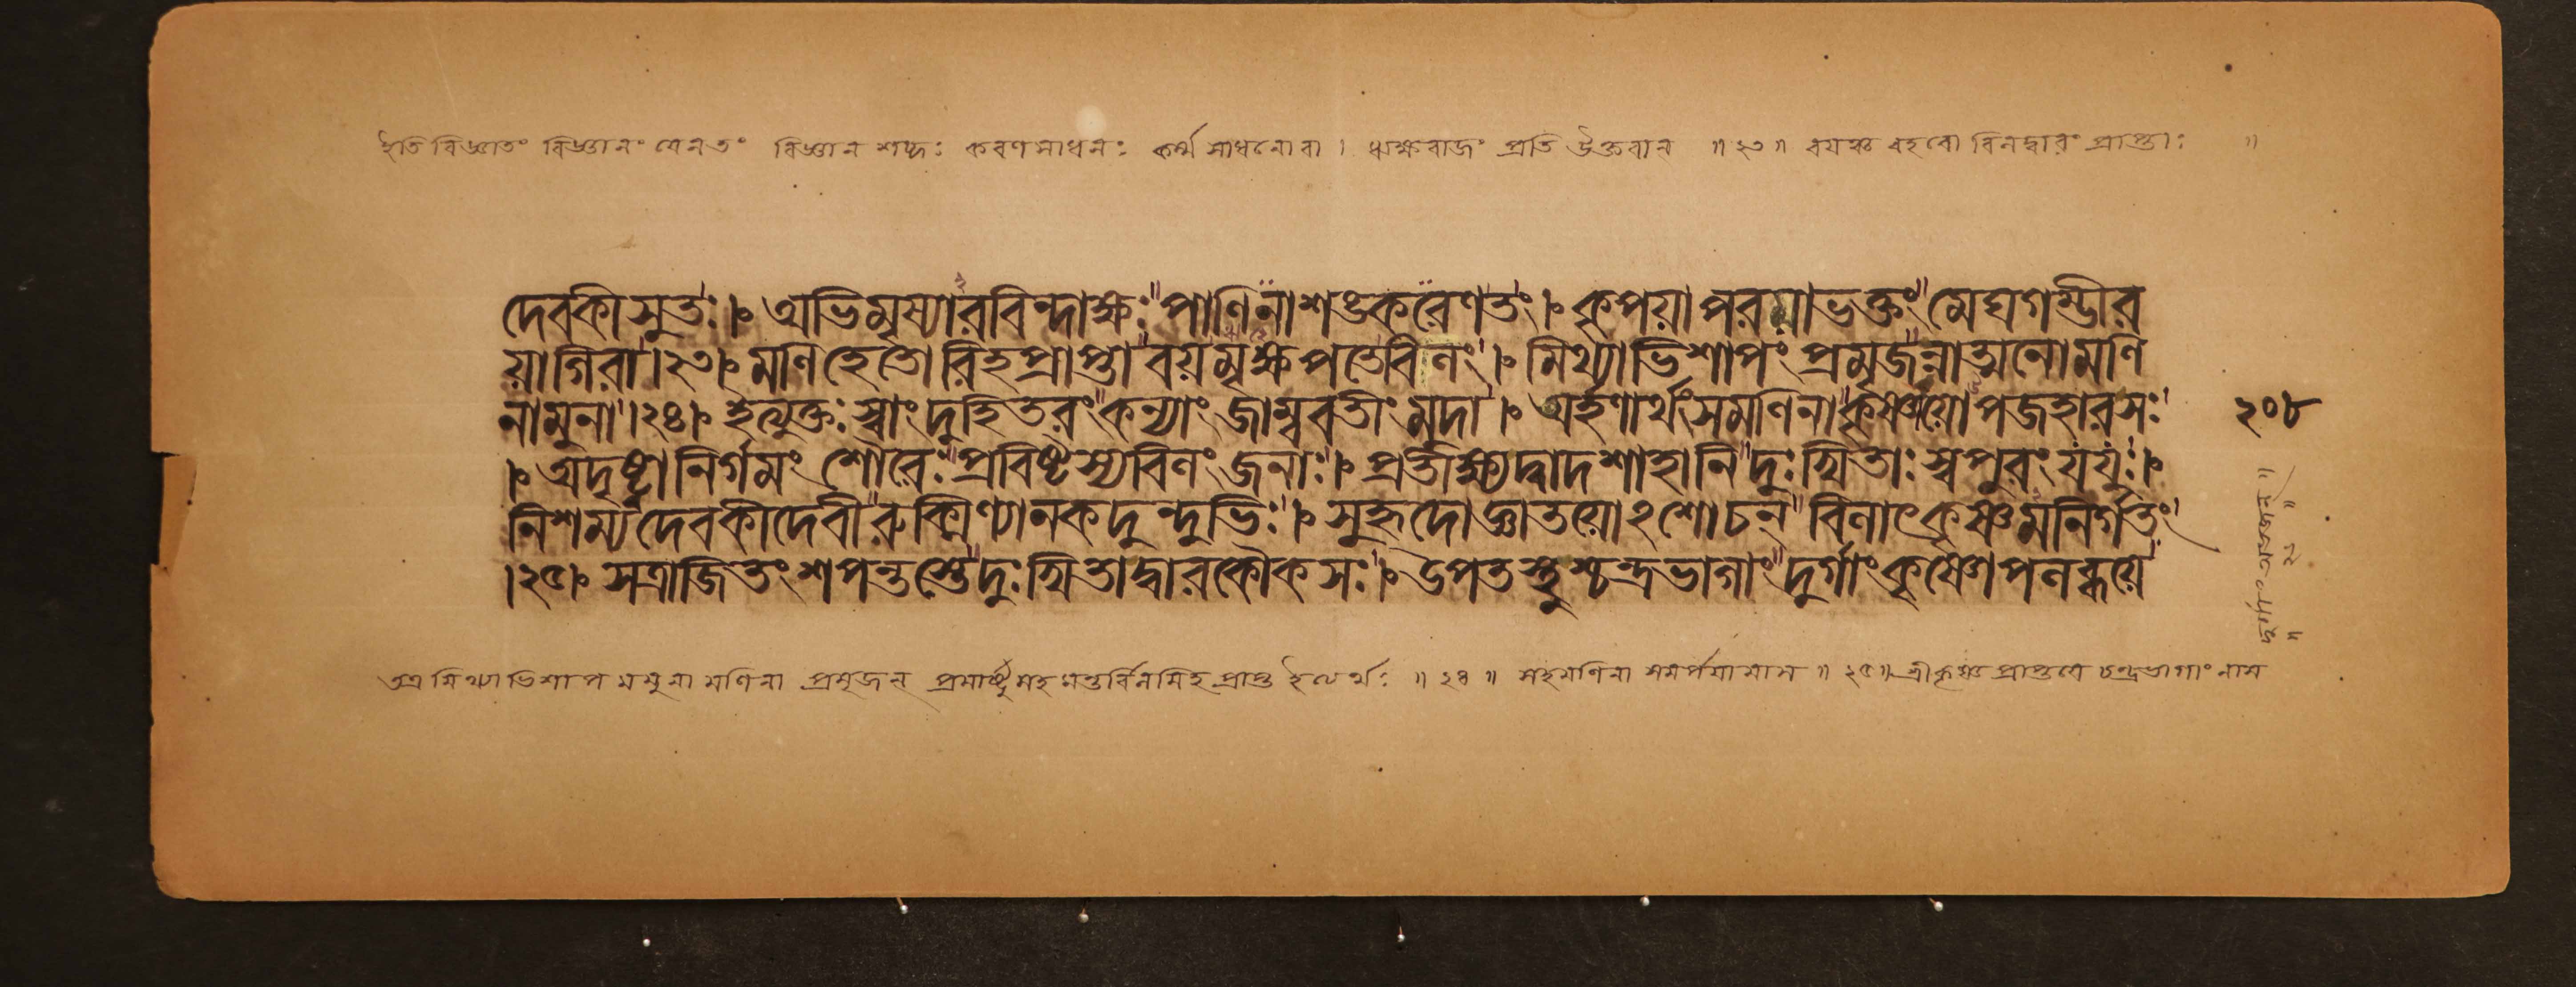 ইতি বিজ্ঞাতং বিজ্ঞানং যেন তং বিজ্ঞান শব্দঃ করণসাধনঃ কর্ম্ম সাধনো বা । ঋক্ষরাজং প্রতি উক্তবান ॥ ২৩ ॥ বয়ঞ্চ বহবো বিলদ্বারং প্রাপ্তাঃ ॥
দেবকীসুতঃ । অভিমৃষ্যারবিন্দাক্ষঃ পাণিনা শঙ্করেণ তং । কৃপয়া পরয়া ভক্তং মেঘগম্ভীর
য়া গিরা । ২৩ । মণিহেতোরিহ প্রাপ্তা বয়মৃক্ষপতে বিলং । মিথ্যাভিশাপং প্রমৃজন্নাত্মনো মণি
নামুনা । ২৪ । ইত্যুক্তঃ স্বাং দুহিতরং কন্যাং জাম্ববতীং মুদা । অর্হণার্থং স মণিনা কৃষ্ণায়োপজহার সঃ
। অদৃষ্ট্বা নির্গমং শৌরেঃ প্রবিষ্টস্য বিলং জনাঃ । প্রতীক্ষ্য দ্বাদশাহানি দুঃখিতাঃ স্বপুরং যযুঃ ।
নিশম্য দেবকী দেবী রুক্মিণ্যানকদুন্দুভিঃ । সুহৃদো জ্ঞাতয়োঽশোচন্ বিলাৎ কৃষ্ণমনির্গতং
। ২৫ । সত্রাজিতং শপন্তস্তে দুঃখিতা দ্বারকৌকসঃ । উপতস্থুশ্চন্দ্রভাগাং দুর্গাং কৃষ্ণোপলব্ধয়ে
২০৮
তত্র মিথ্যাভিশাপ মমুনা মণিনা প্রমৃজন প্রমার্ষ্টুমহমন্তর্বিলমিহ প্রাপ্ত ইত্যর্থঃ ॥ ২৪ ॥ সহমণিনা সমর্পয়ামাস ॥ ২৫ ॥ শ্রীকৃষ্ণ প্রাপ্তয়ে চন্দ্রভাগাং নাম